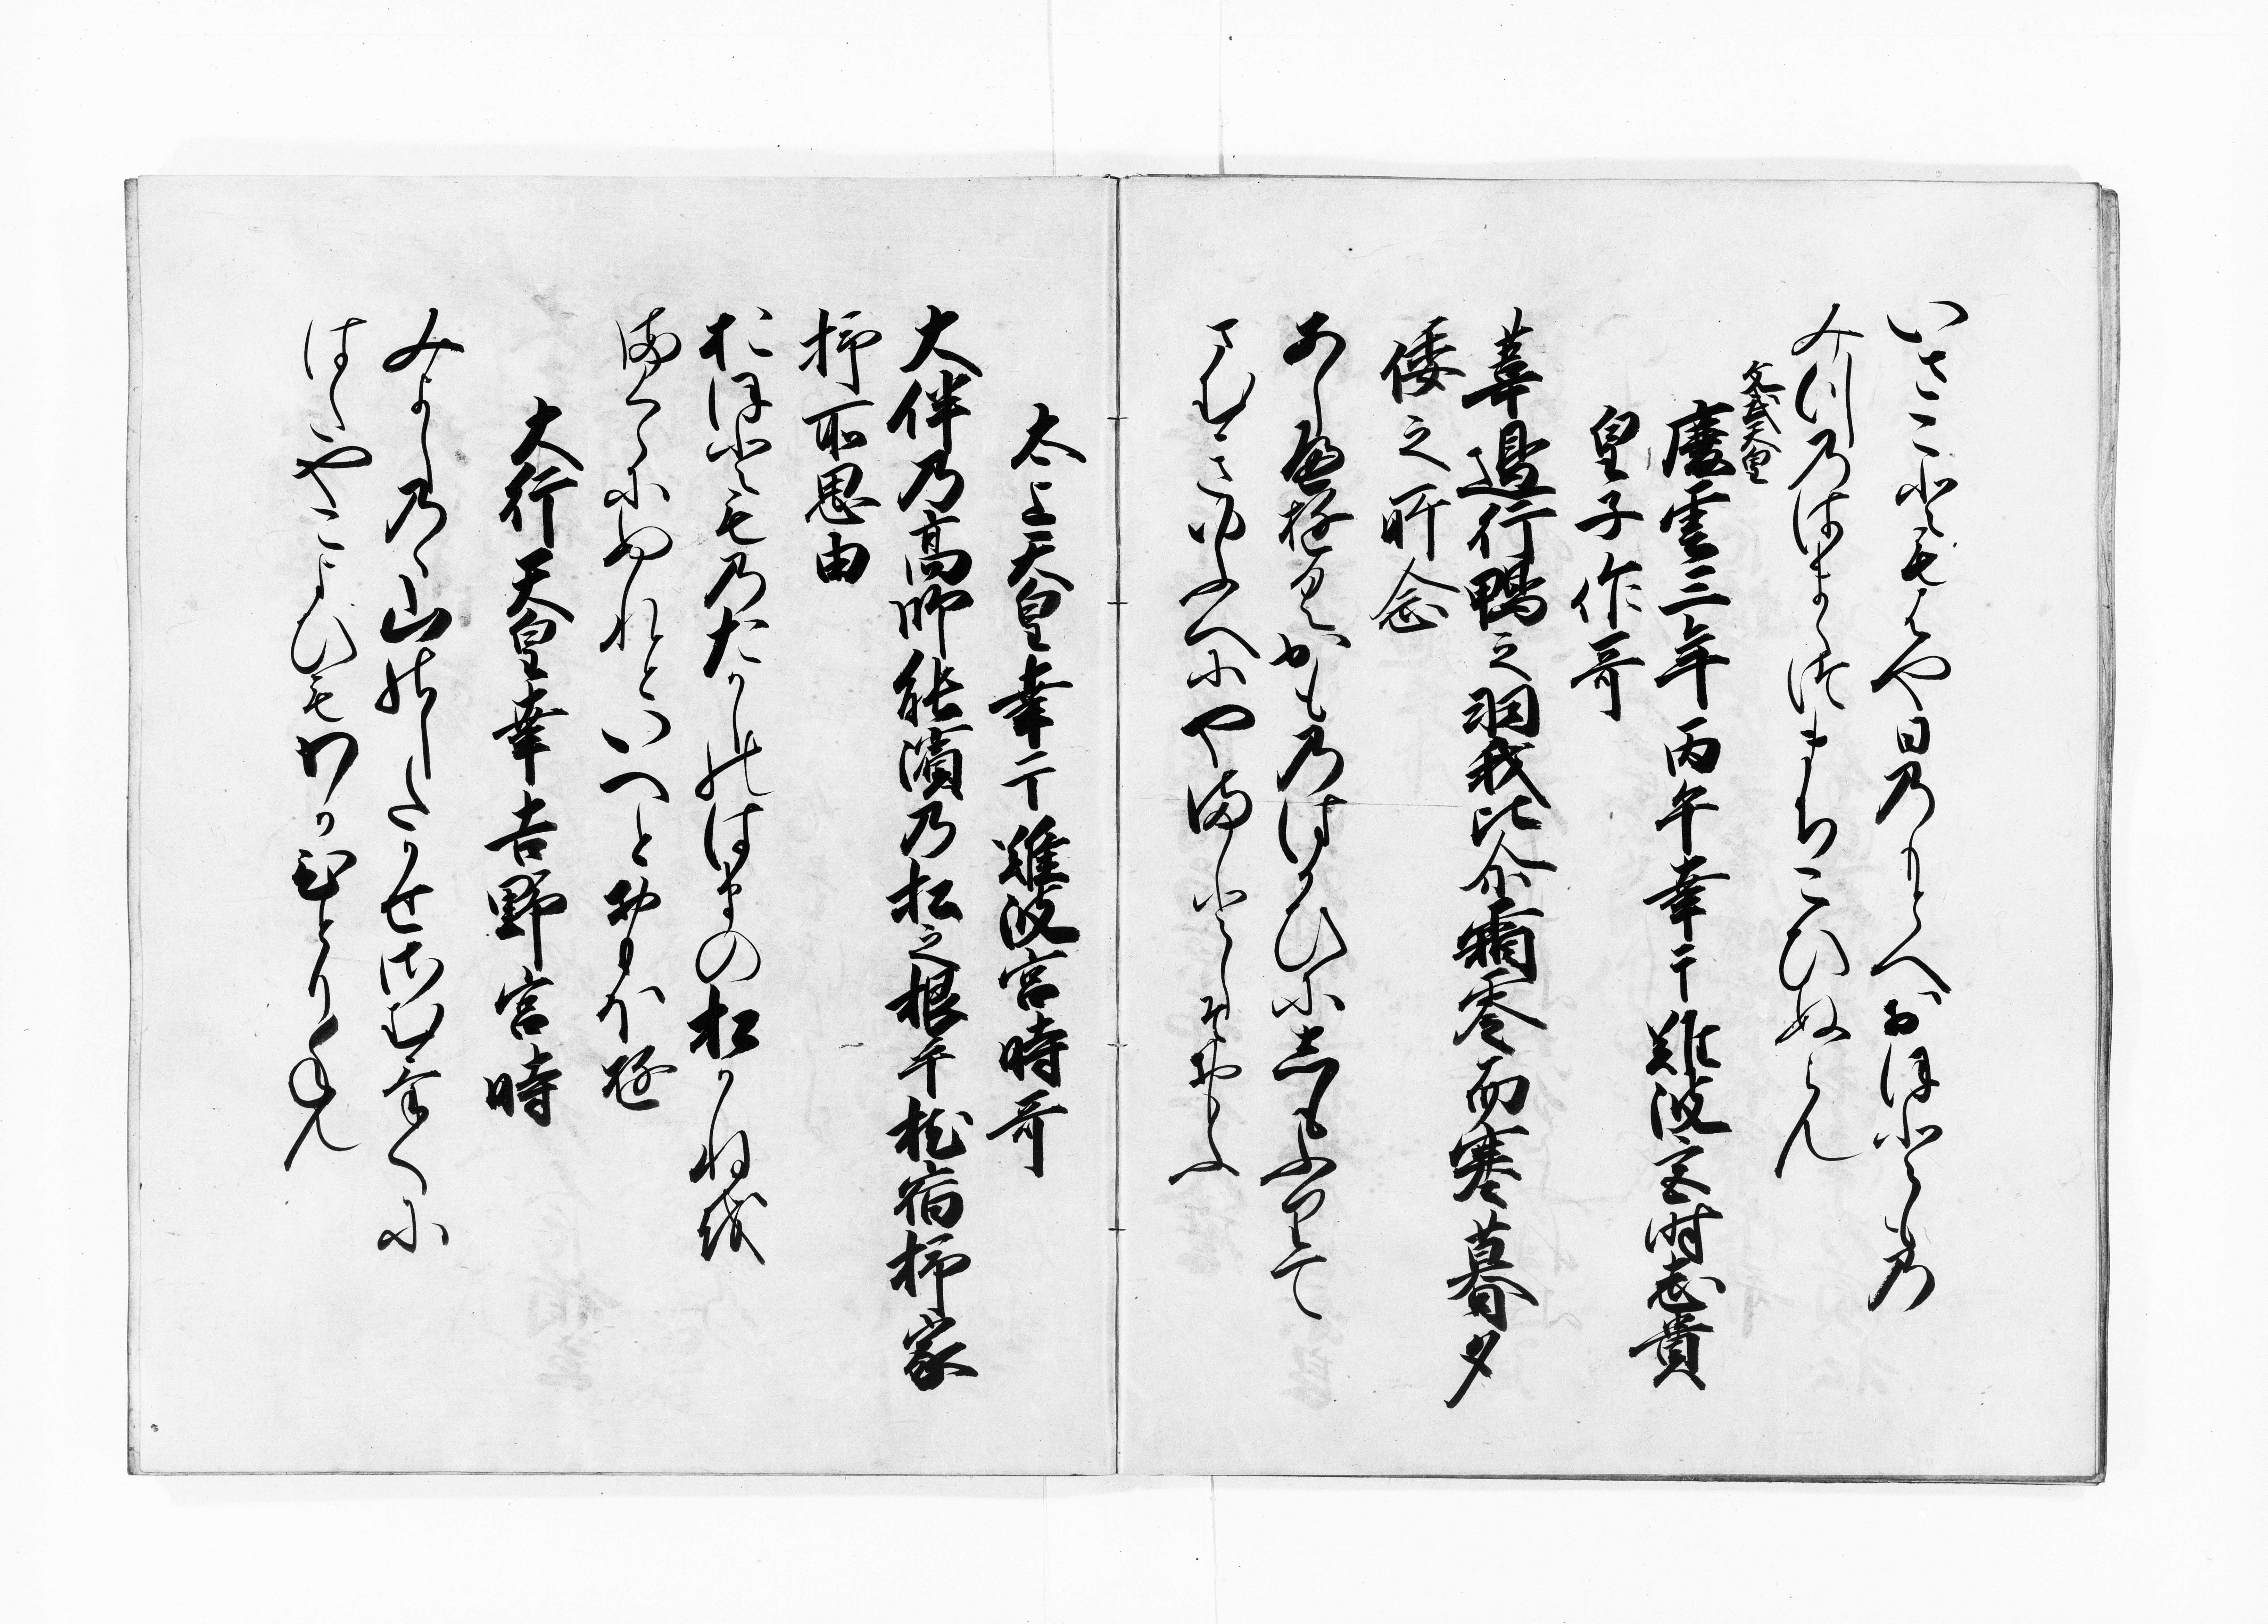 いさこともはや日乃もとへおほとも乃
みつ乃はまゝつまちこひぬらん
文武天皇
慶雲三年丙午幸于難波宮時志貴
皇子作哥
葦邊行鴨之羽我比尓霜零而寒暮夕
倭之所念
あしへ遊くかも乃はかひに志もふりて
さむきゆふへにやまとしそおもふ
太上天皇幸于難波宮時哥
大伴乃高師能濱乃松之根乎枕宿杼家
杼所思由
おほとも乃たかしのはまの松かねを
まくらにぬれといへとおもほゆ
大行天皇幸吉野宮時
みよし乃ゝ山のしたかせさむけくに
はたやこよひもわかひとりねん